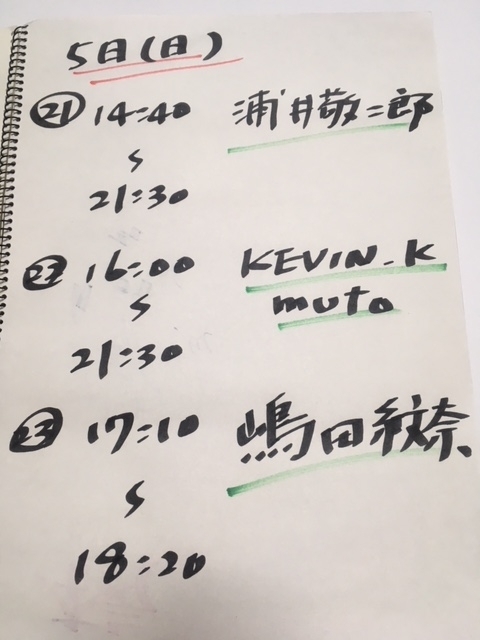 5日(日)
㉑ 14:40 浦井敬二郎
〜
21:30
㉒ 16:00 KEVIN.K
〜 muto
21:30
㉓ 17:10 嶋田紋奈
〜
18:20